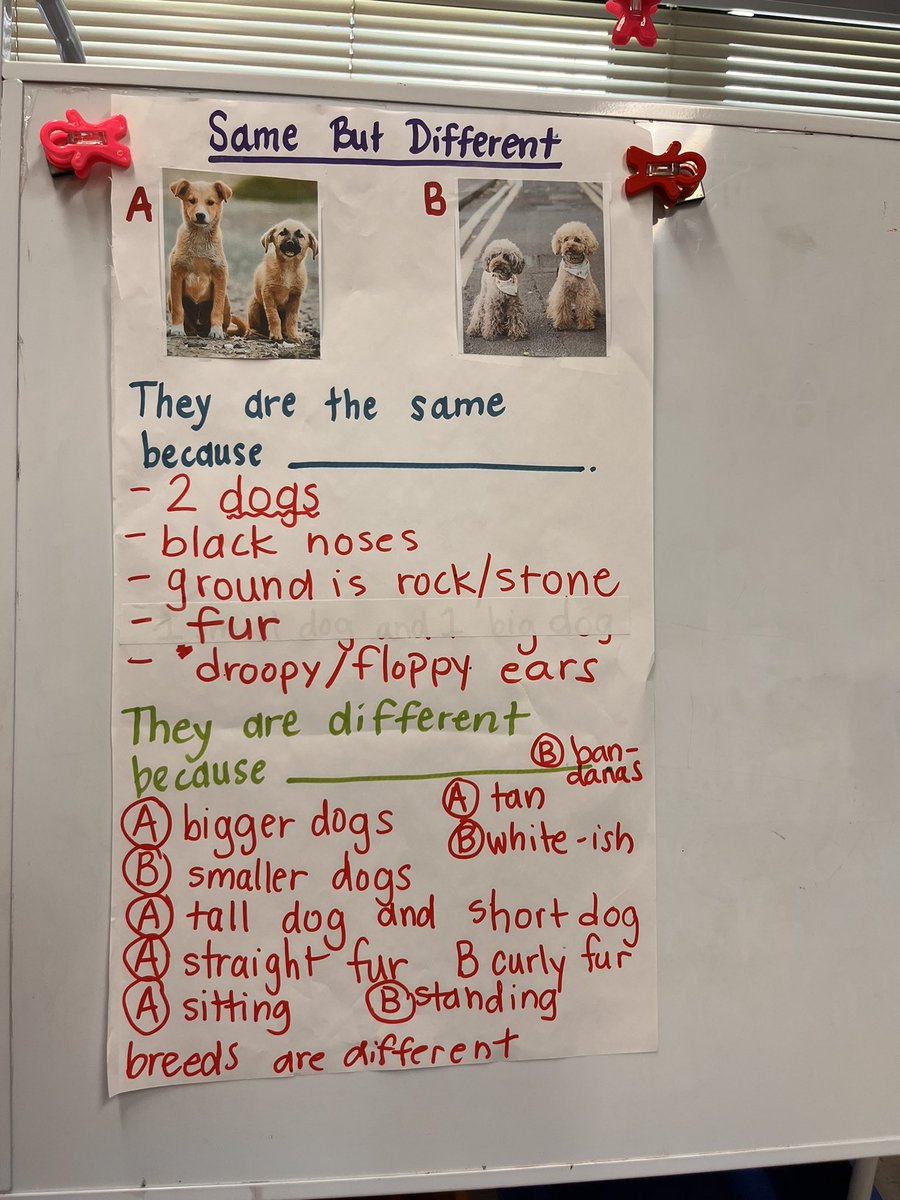 Same But Different
A B
They are the same
because ____________.
- 2 dogs
- black noses
- ground is rock/stone
- fur
- droopy/floppy ears
They are different
because ____________
Ⓑ ban-
danas
Ⓐ bigger dogs Ⓐ tan
Ⓑ smaller dogs Ⓑ white-ish
Ⓐ tall dog and short dog
Ⓐ straight fur B curly fur
Ⓐ sitting Ⓑ standing
breeds are different